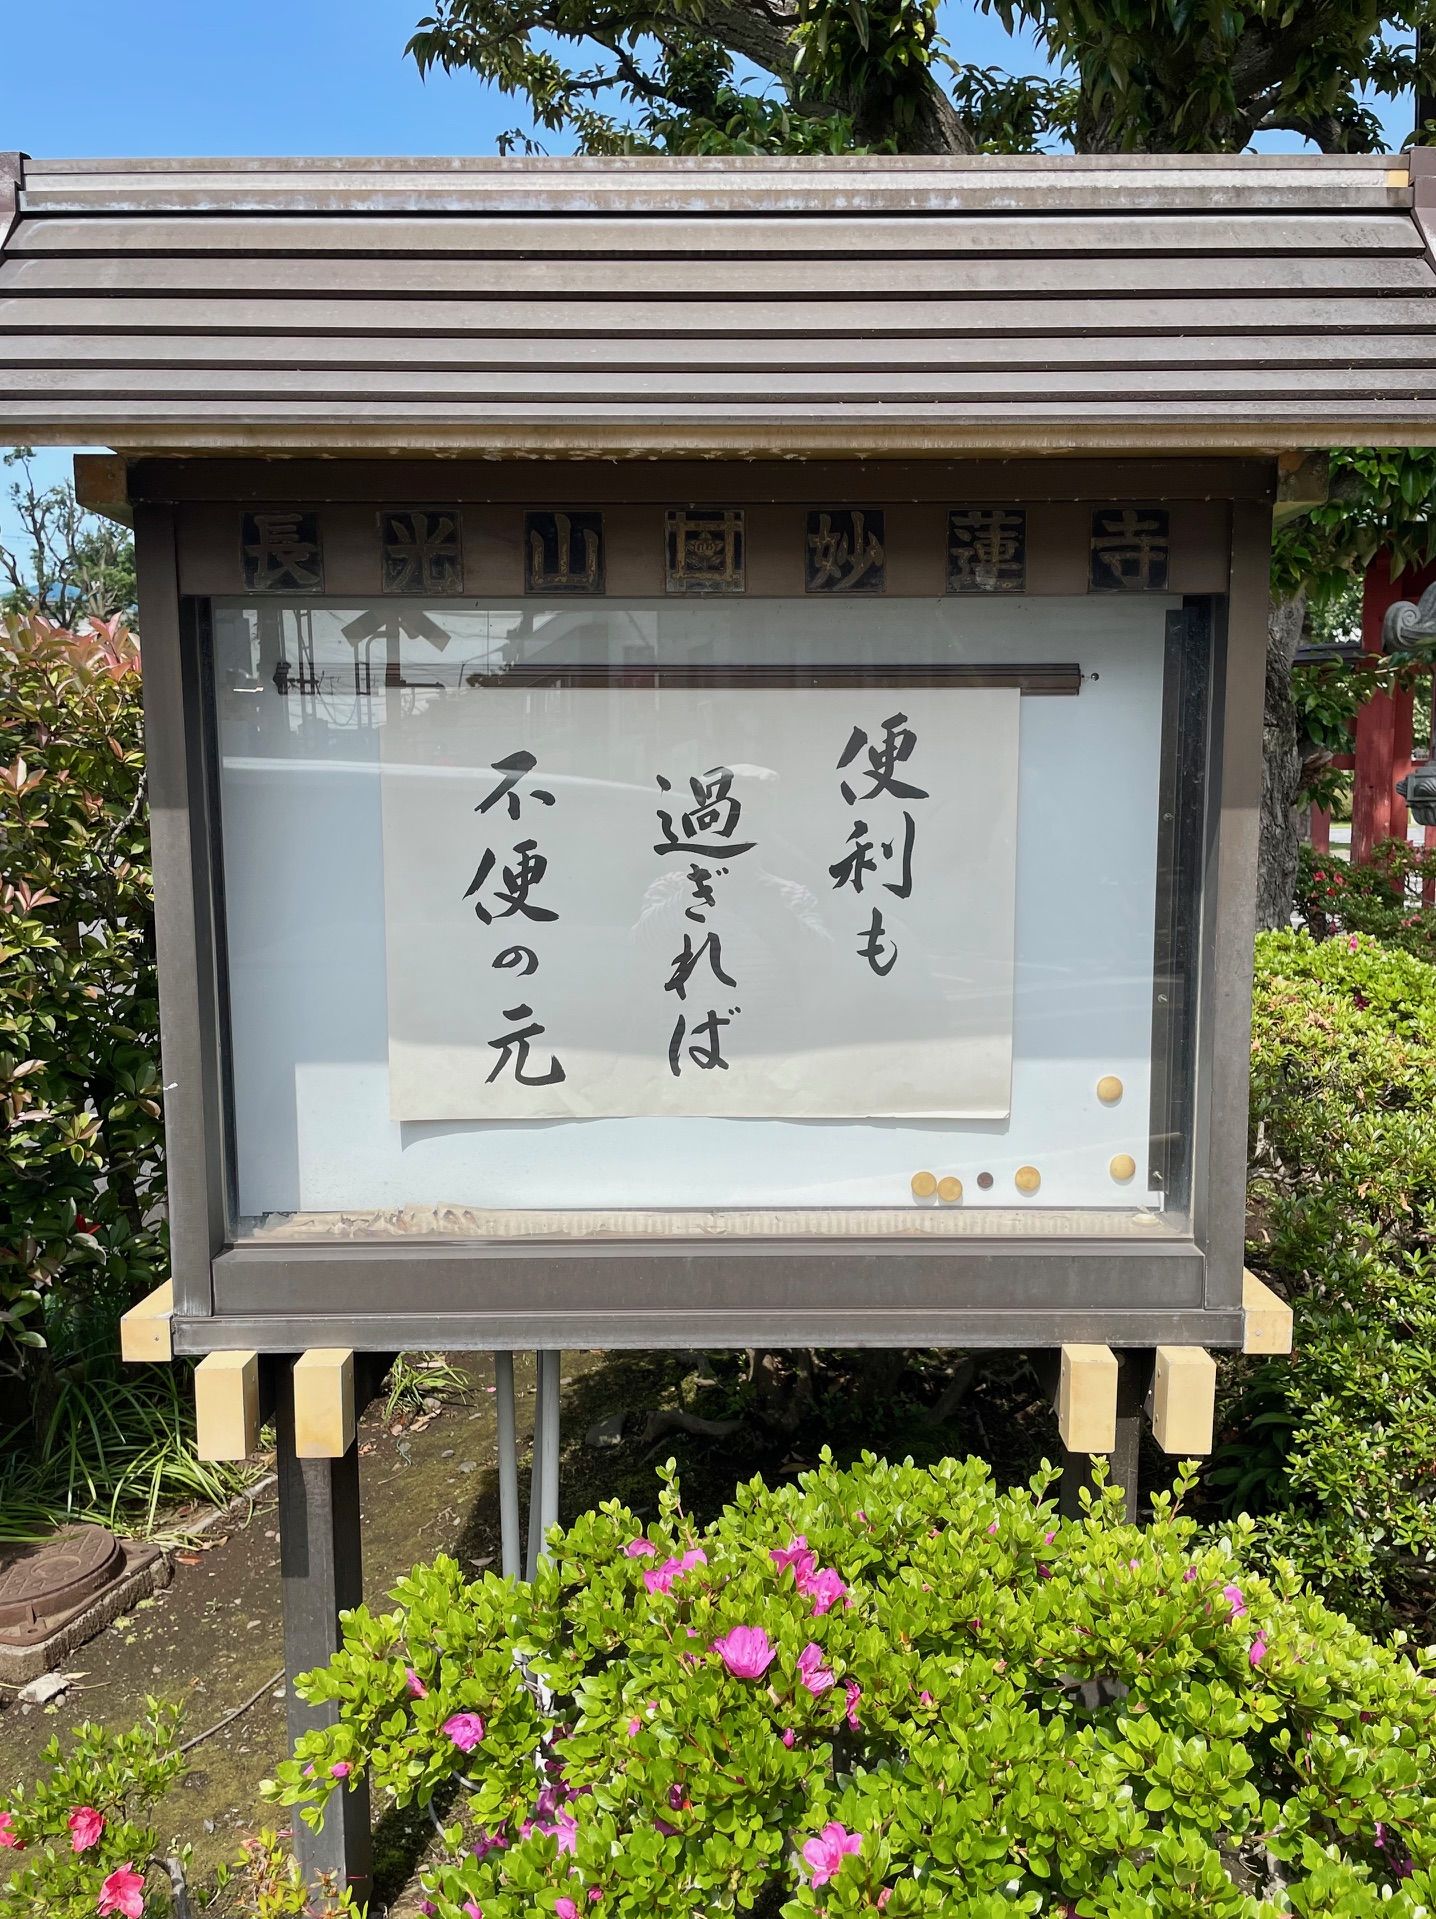 長光山妙蓮寺
便利も
過ぎれば
不便の元